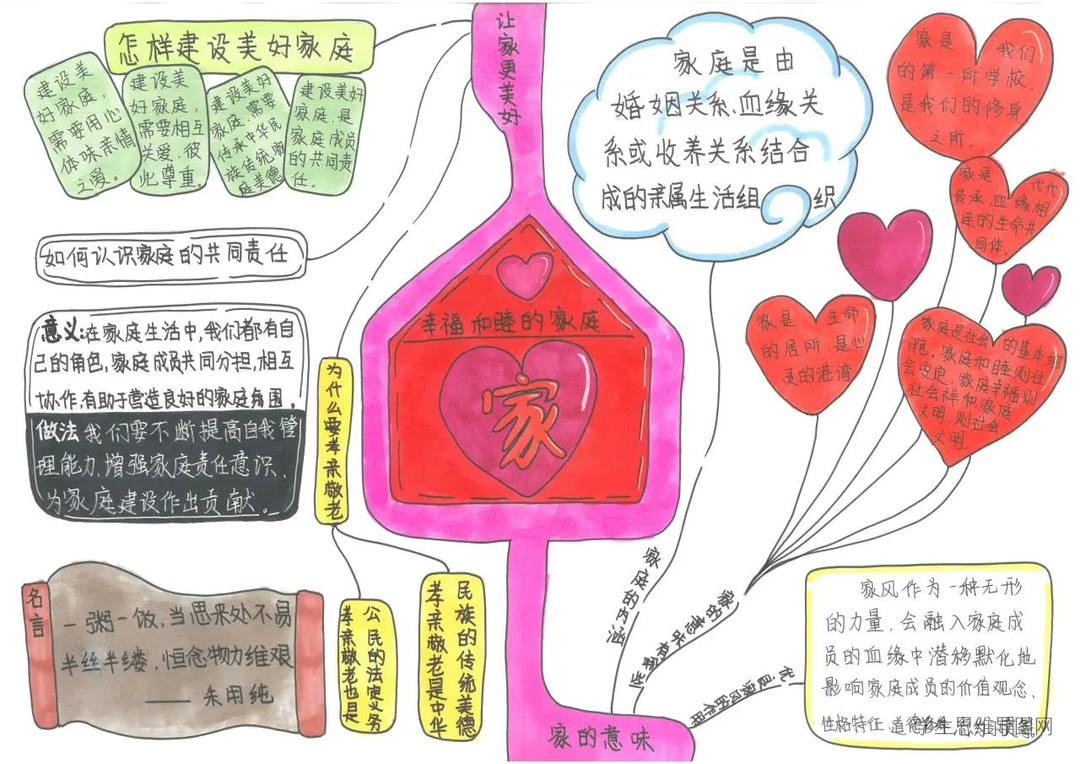 怎样建设美好家庭
建设美
好家庭,
需要用心
体味亲情
之爱。
建设美
好家庭,
需要相互
关爱,彼
此尊重。
建设美好
家庭,需要
传承中华民
族传统家
庭美德
建设美好
家庭,是
家庭成员
的共同责
任。
让家更美好
如何认识家庭的共同责任
意义:在家庭生活中,我们都有自
己的角色,家庭成员共同分担,相互
协作,有助于营造良好的家庭氛围。
做法 我们要不断提高自我管
理能力,增强家庭责任意识,
为家庭建设作出贡献。
为什么要孝亲敬老
公民的法定义务
孝亲敬老也是
民族的传统美德
孝亲敬老是中华
名言
一粥一饭,当思来处不易
半丝半缕,恒念物力维艰
——朱用纯
幸福和睦的家庭
家
家的意味
家庭的内涵
家庭是由
婚姻关系,血缘关
系或收养关系结合
成的亲属生活组织
家是我们
的第一所学校,
是我们的修身
之所。
家是代代
传承,血缘相
连的生命共
同体。
家是生命
的居所,是心
灵的港湾
家庭是社会的基本细
胞,家庭和睦则社
会安定,家庭幸福则
社会祥和家庭
文明,则社会
文明。
优良家风的作用
家风作为一种无形
的力量,会融入家庭成
员的血缘中潜移默化地
影响家庭成员的价值观念、
性格特征、道德
学生思维导图网